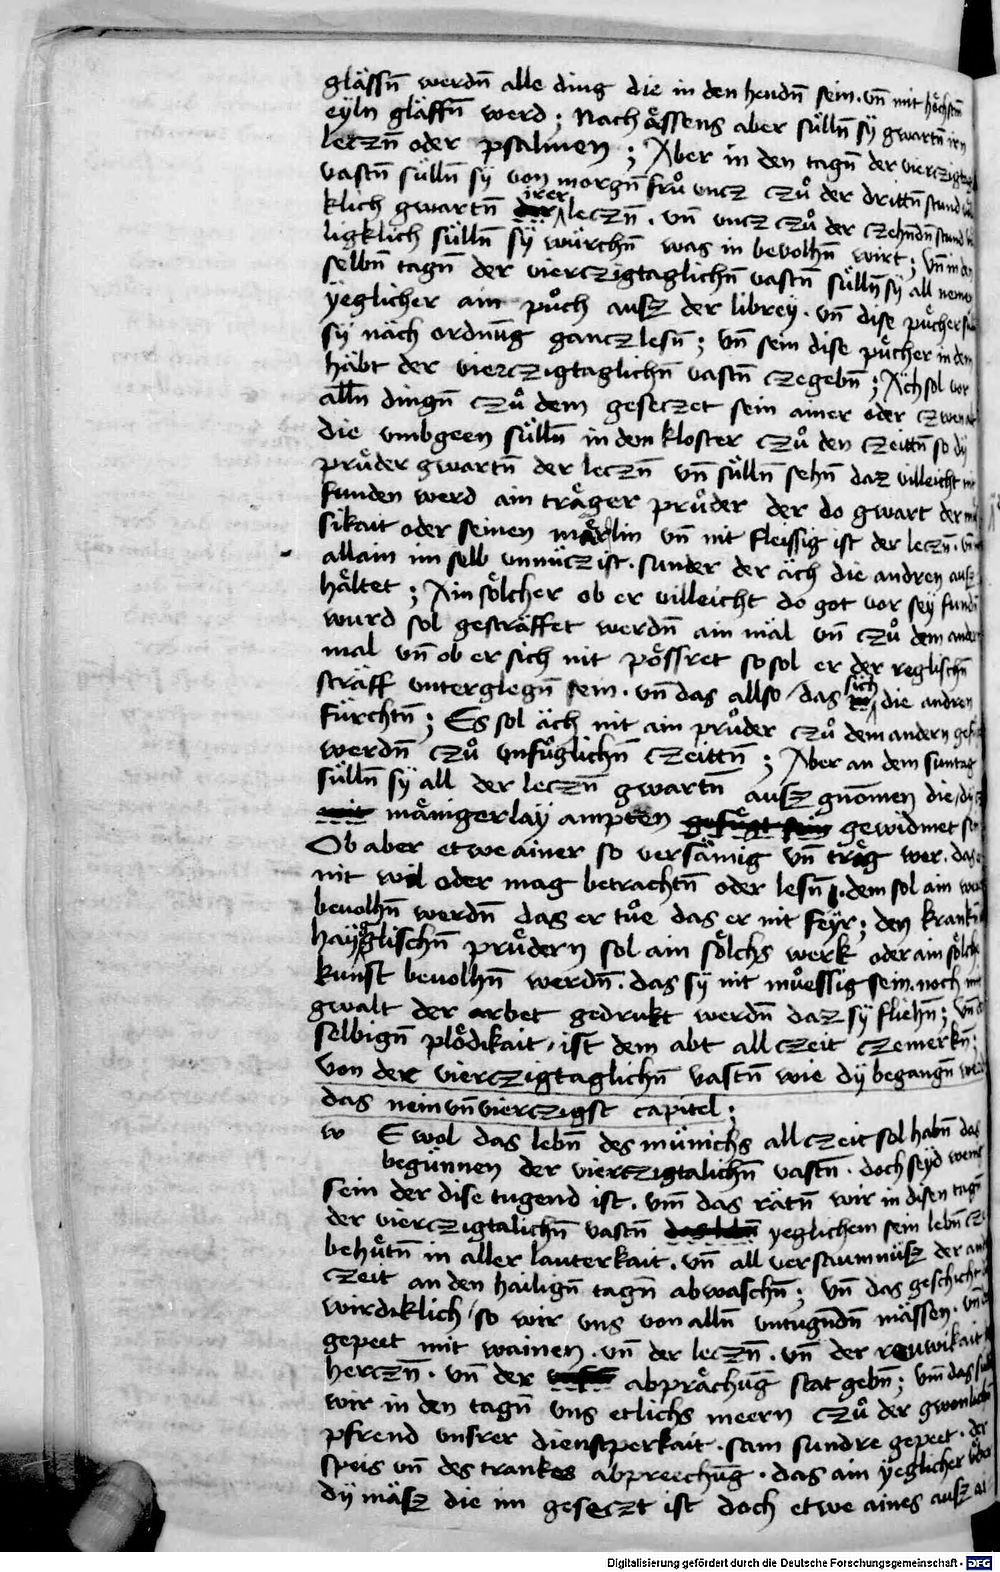 glässn̄ werdn̄ alle ding die in den hendn̄ sein . vn̄ mit höchstn̄
eyln gläffn̄ werd ; Nach ässens aber süllñ sÿ gwartn̄ irn
leczn̄ oder psalmen ; Aber in den tagn̄ der vierczigtag
vastn̄ sülln̄ sÿ von morgn̄ frů vncz czů der drittn̄ stund
klich gwartn̄ irer leczn̄ . vn̄ vncz czů der czehndn̄ stund
ligklich sülln̄ sÿ würchn̄ was in bevolhn̄ wirt ; vn̄ in den
selbn̄ tagn̄ der vierczigtaglichn̄ vastn̄ sülln̄ sÿ all nemen
ÿeglicher ain půch ausz der librey . vn̄ dise pücher
sÿ näch ordnūg gancz lesn̄ ; vn̄ sein dise pücher in dem
häbt der vierczigtaglichn̄ vastn̄ czegebn̄ ; Äch sol vor
alln̄ dingn̄ czů dem geseczet sein ainer oder czwen
die vmbgeen sülln̄ in dem kloster czů den czeittn̄ so dÿ
prüder gwartn̄ der leczn̄ vn̄ sülln̄ sehn̄ daz villeicht
funden werd ain träger průder der do gwart der
sikait oder seinen märlin vn̄ nit fleissig ist der leczn̄ . vn̄
allain im selb vnnücz ist . sunder der äch die andren auf
hältet ; Ain sölcher ob er villeicht do got vor seÿ fundn̄
wurd sol gesträffet werdn̄ ain mäl vn̄ czů dem andern
mal vn̄ ob er sich nit pössret so sol er der reglischn̄
sträff vnterglegn̄ sein . vn̄ das allso / das sich die andren
fürchtn̄ ; Es sol äch nit ain průder czů dem andern
werdn̄ czů vnfüglichn̄ czeittn̄ ; Aber an dem suntag
sülln̄ sÿ all der leczn̄ gwartn̄ ausz gnom̄en die
mit mänigerlaÿ ampten gefügt sein gewidmet
Ob aber etwe ainer so versämig vn̄ träg wer . das
nit wil oder mag betrachtn̄ oder lesn̄ . dem sol ain
beuolhn̄ werdn̄ das er tůe das er nit feÿr ; den
haÿglischn̄ prüdern sol ain sölchs werk oder ain
kunst beuolhn̄ werdn̄ . das sÿ nit můessig sein . noch mit
gwalt der arbet gedrukt werdn̄ daz sÿ fliehn̄ ; vn̄
selbign̄ plödikait / ist dem abt all czeit czemerkn̄ ;
von der vierczigtaglichn̄ vastn̄ wie dÿ begangn̄
das neinvn̄vierczigst capitel ;
w E wol das lebn̄ des münichs all czeit sol habn̄ das
begünnen der vierczigtalichn̄ vastn̄ . doch seÿd
sein der dise tugend ist . vm̄ das rätn̄ wir in disen tagn̄
der vierczigtalichn̄ vastn̄ yeglichem sein lebn̄
behütn̄ in aller lauterkait . vn̄ all versaumnüsz der
czeit an den hailign̄ tagn̄ abwaschn̄ ; vn̄ das geschicht
wirdiklich / so wir vns von alln̄ vntugndn̄ mässen . vn̄
gepeet mit wainen . vn̄ der leczn̄ . vn̄ der reuwikait
herczn̄ . vn̄ der abprächūg stat gebn̄ ; vm̄ das
wir in den tagn̄ vns etlichs meern czů der
pfrend vnsrer dienstperkait . sam sundre gepeet . der
speis vn̄ des trankes abpreechūg . das ain ÿeglicher
dÿ mäsz die im geseczt ist doch etwe aines ausz
Digitalisierung gefördert durch die Deutsche Forschungsgemeinschaft - DFG